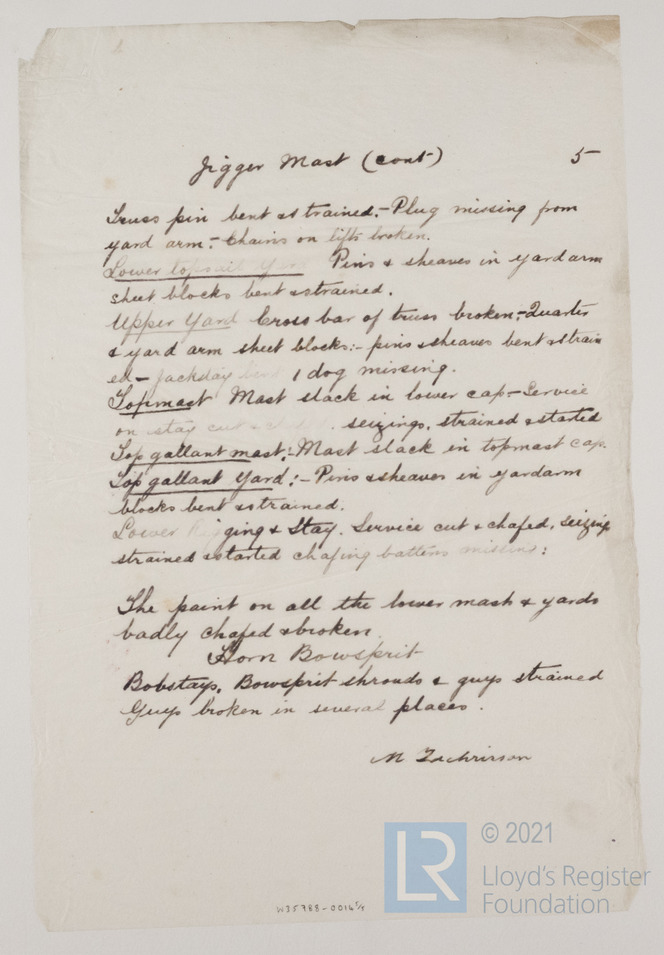 Jigger Mast (cont) 5
Truss pin bent & strained.- Plug missing from
yard arm:- Chains on lifts broken.
Lower topsail Yard Pins & sheaves in yard arm
sheet blocks bent & strained.
Upper Yard Cross bar of truss broken:- Quarter
& yard arm sheet blocks:- pins & sheaves bent & strain
ed- Jackstay bent 1 dog missing.
Topmast Mast slack in lower cap- Service
on stay cut & seizings, strained & started
Top gallant mast:- Mast slack in topmast cap.
Top gallant Yard:- Pins & sheaves in yardarm
blocks bent & strained.
Lower Rigging & Stay. Service cut & chafed, seizing
strained & started chafing battens missing:
The paint on all the lower masts & yards
badly chafed & broken.
Horn Bowsprit
Bobstays, Bowsprit shrouds & guys strained
Guys broken in several places.
M
W35788-0016
LR
© 2021
Lloyd's Register
Foundation